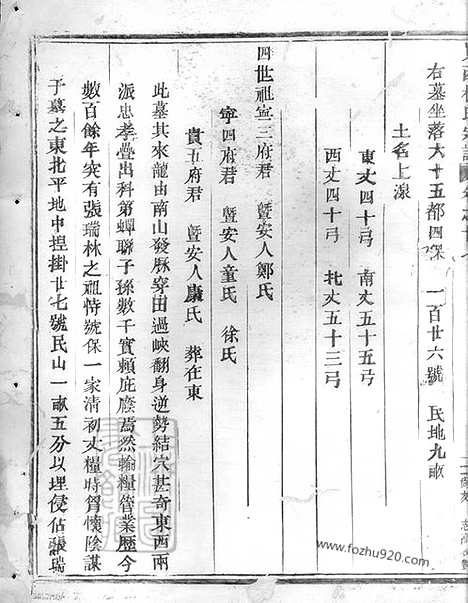 右墓坐落大十五都四保　一百廿六號　民地九畝
土名上湶
東丈四十弓　南丈五十五弓
西丈四十弓　北丈五十三弓
四世祖寧三府君　曁安人鄭氏
寧四府君　曁安人童氏　徐氏
貴五府君　曁安人康氏　葬在東
此墓其來龍由南山發脈穿田過峽翻身逆勢結穴甚奇東西兩
派忠孝疊出科第蟬聯子孫數千實賴庇廕焉然輸糧管業歷今
數百餘年突有張瑞林之祖恃號保一家清初丈糧時胷懷陰謀
于墓之東北平地中捏掛廿七號民山一畝五分以埋侵佔張瑞
www.fozhu920.com